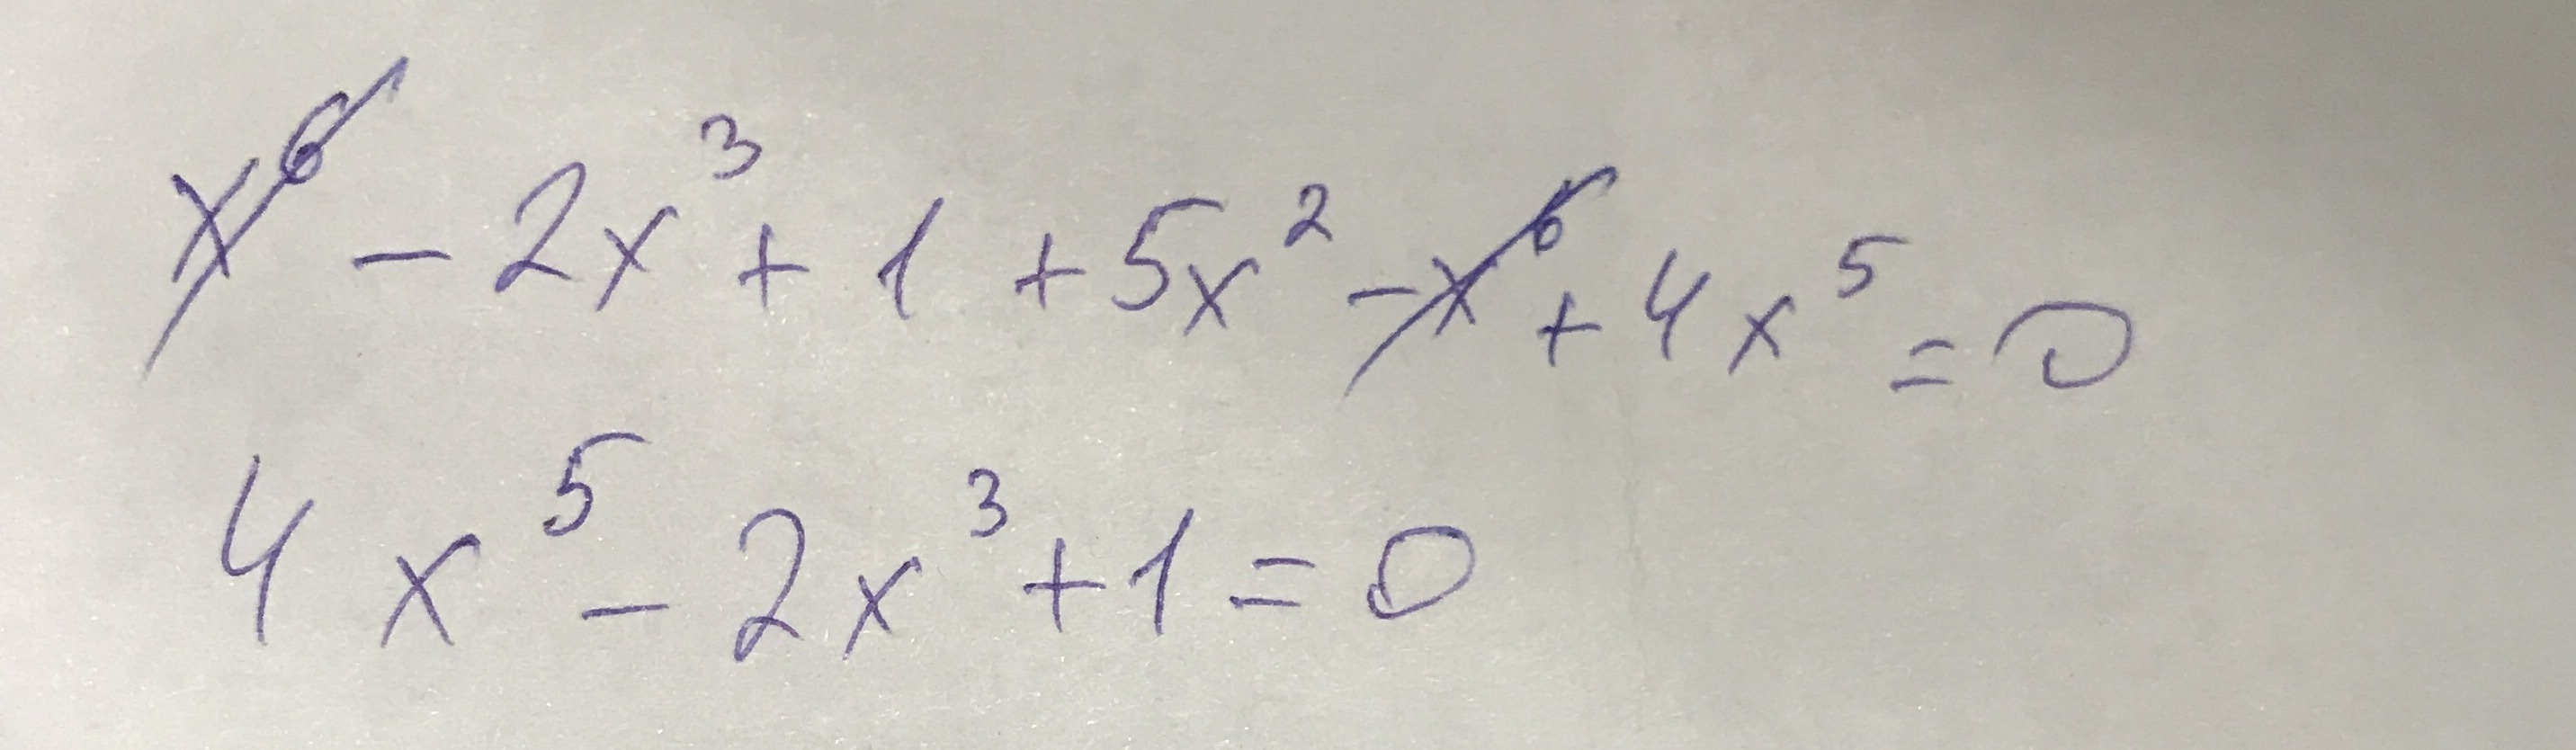 x⁶ - 2x³ + 1 + 5x² - x⁶ + 4x⁵ = 0
4x⁵ - 2x³ + 1 = 0